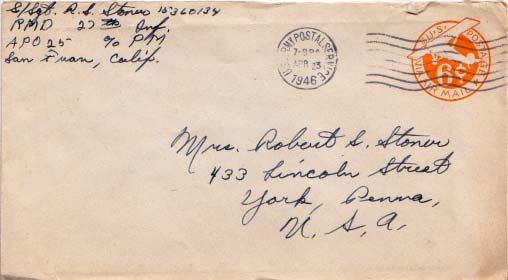 S/Sgt. R. S. Stoner 15360134
RMD 27th Inf.
APO 25 % P.M.
San Fran, Calif.
U.S. ARMY POSTAL SERVICE
APR 23
1946
U.S. POSTAGE
6¢
VIA AIR MAIL
Mrs. Robert S. Stoner
433 Lincoln Street
York, Penna,
U. S. A.